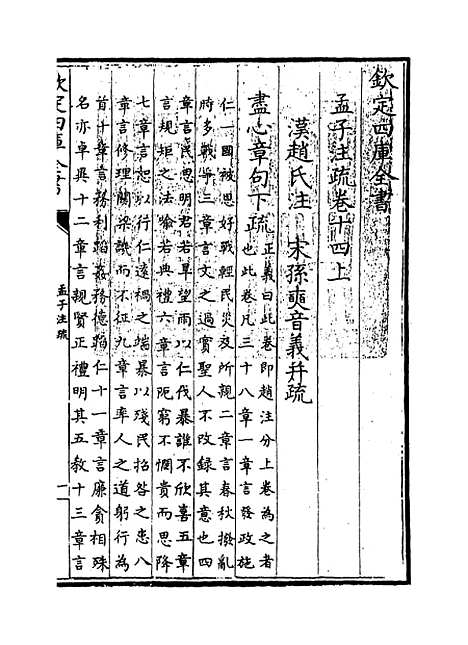 欽定四庫全書
孟子注疏卷十四上
漢趙氏注 宋孫奭音義并疏
盡心章句下疏
正義曰此卷即趙注分上卷為之者
也此卷凡三十八章一章言發政施
仁一國被恩好戰輕民災及所親二章言春秋撥亂
時多戰爭三章言文之過實聖人不改録其意也四
章言民思明君若旱望雨以仁伐暴誰不欣喜五章
言規矩之法喻若典禮六章言阨窮不憫貴而思降
七章言恕以行仁遠禍之端暴以殘民招咎之患八
章言修理關梁譏而不征九章言率人之道躬行為
首十章言務利蹈姦務德蹈仁十一章言廉貪相殊
名亦卓異十二章言親賢正禮明其五教十三章言
欽定四庫全書
孟子注疏
一